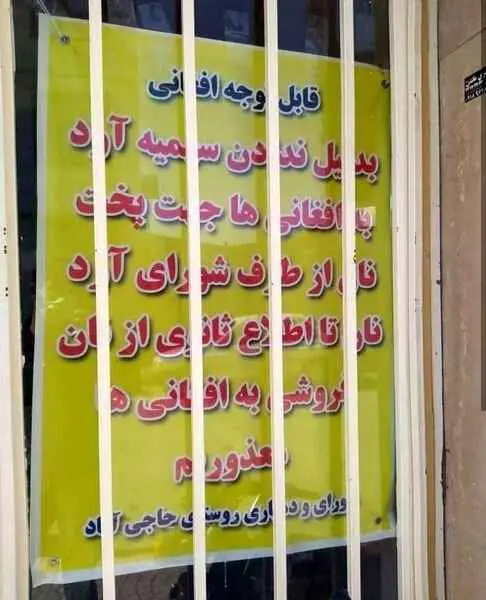 قابل توجه افغانی
بدلیل ندادن سهمیه آرد
به افغانی ها جهت پخت
نان از طرف شورای آرد
نان تا اطلاع ثانوی از نان
فروشی به افغانی ها
معذوریم
شورای و دهیاری روستای حاجی آباد